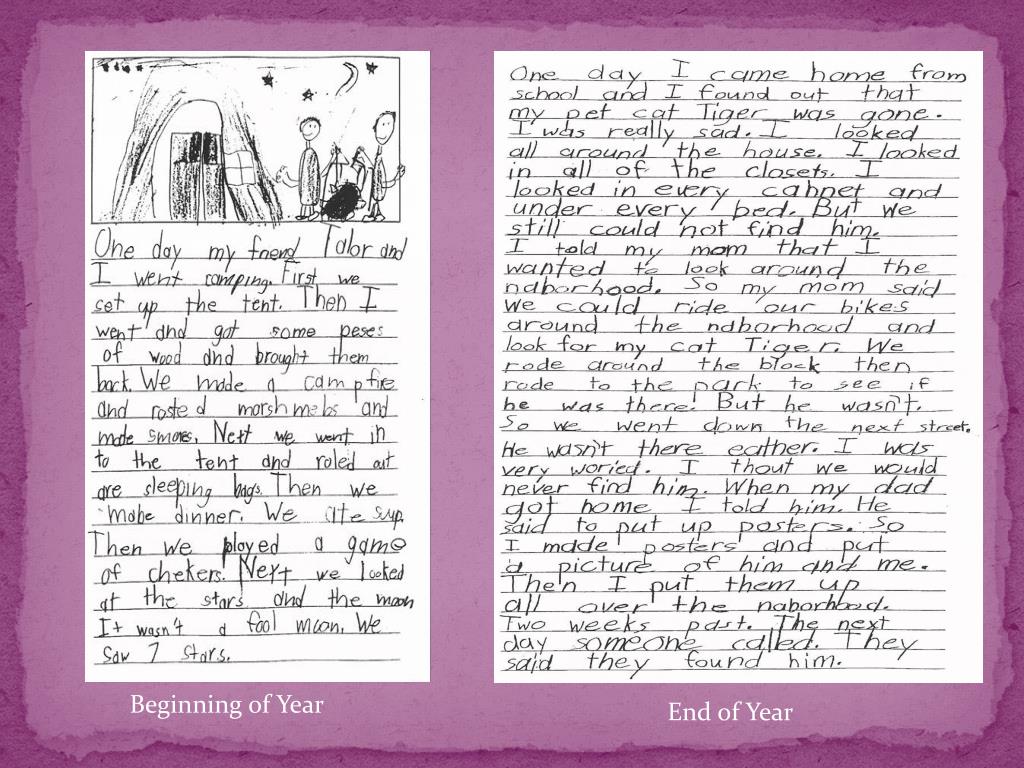 One day my friend Talor and
I went camping. First we
set up the tent. Then I
went and got some peses
of wood and brought them
back. We made a campfire
and rosted marshmelos and
made smores. Next we went in
to the tent and roled out
are sleeping bags. Then we
made dinner. We ate sup.
Then we played a game
of chekers. Next we looked
at the stars and the moon
It wasn't a fool moon. We
saw 7 stars.
Beginning of Year
One day I came home from
school and I found out that
my pet cat Tiger was gone.
I was really sad. I looked
all around the house. I looked
in all of the closets. I
looked in every cabnet and
under every bed. But we
still could not find him.
I told my mom that I
wanted to look around the
naborhood. So my mom said
we could ride our bikes
around the naborhood and
look for my cat Tiger. We
rode around the block then
rode to the park to see if
he was there. But he wasn't.
So we went down the next street.
He wasn't there eather. I was
very woried. I thout we would
never find him. When my dad
got home I told him. He
said to put up posters. So
I made posters and put
a picture of him and me.
Then I put them up
all over the naborhood.
Two weeks past. The next
day someone called. They
said they found him.
End of Year